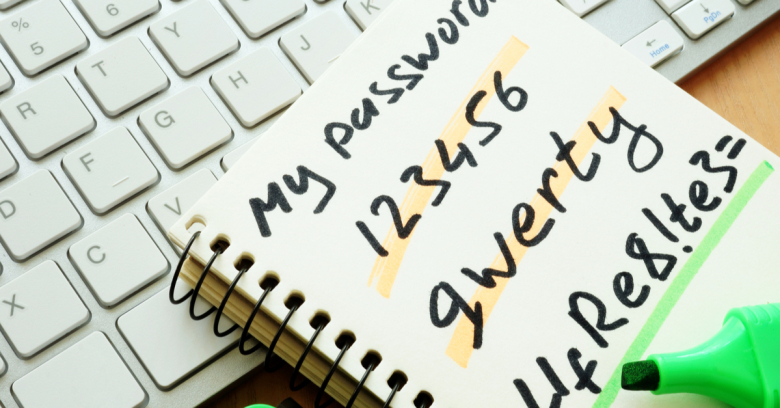 %
5
6
Y
K
T
J
R
G
H
F
D
V
C
X
Home
PgDn
My password
123456
qwerty
4fRe8!te3=